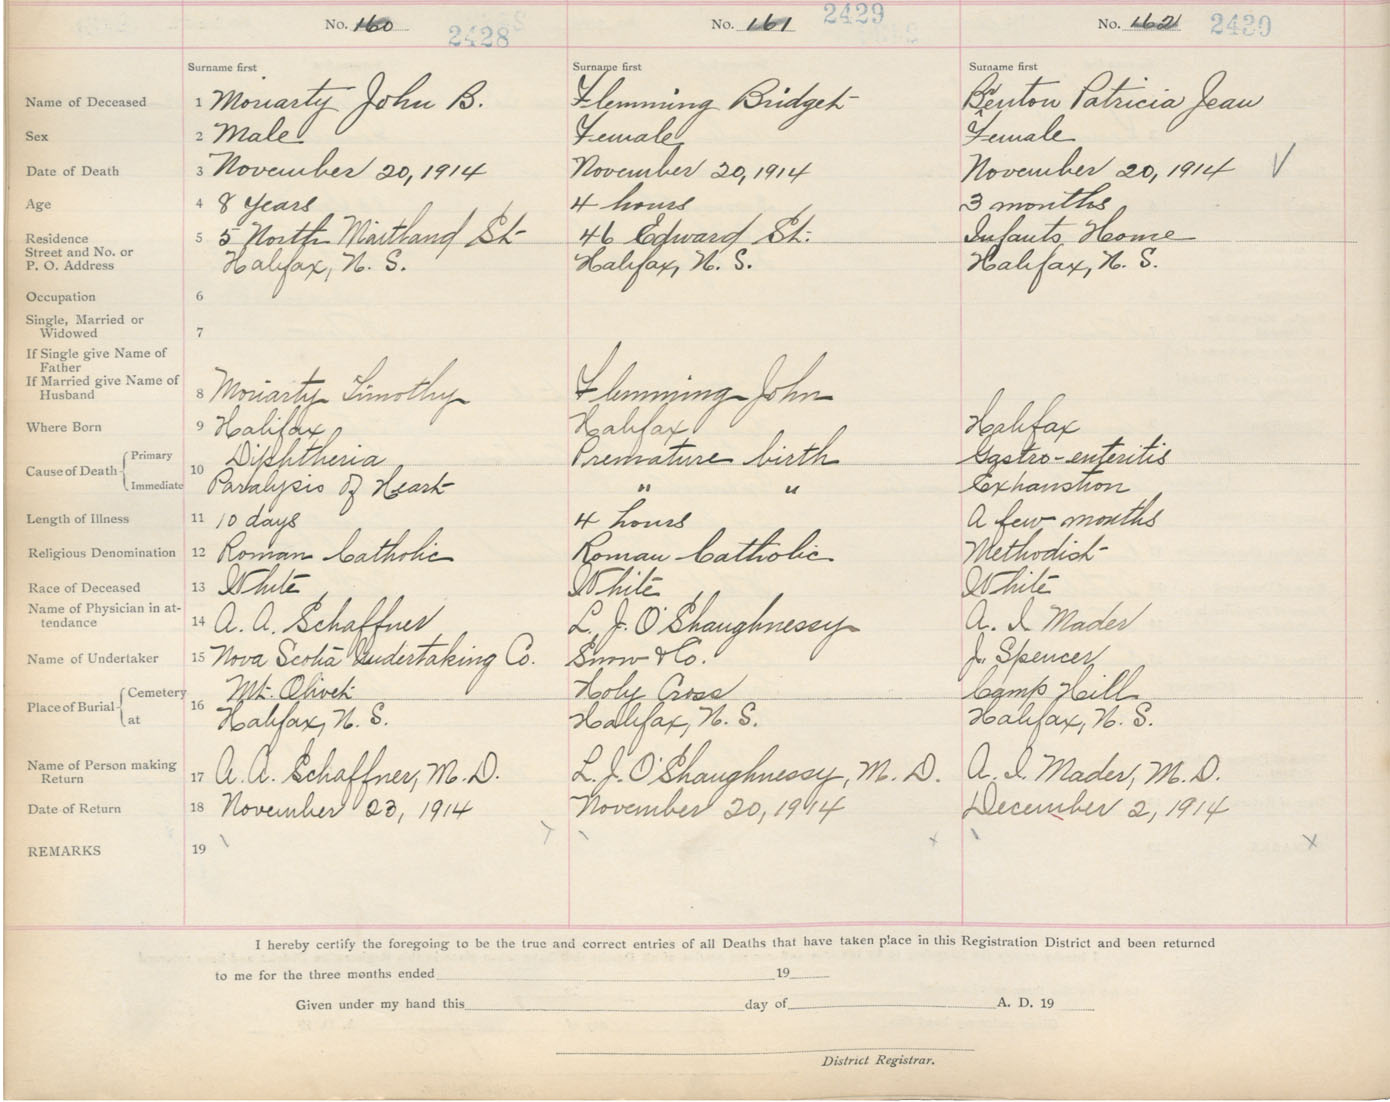 No. 160 2428 No. 161 2429 No. 162 2430
Surname first Surname first Surname first
Name of Deceased 1 Moriarty John B. Flemming Bridget Benton Patricia Jean
Sex 2 Male Female Female
Date of Death 3 November 20, 1914 November 20, 1914 November 20, 1914 ✓
Age 4 8 years 4 hours 3 months
Residence 5 5 North Maitland St 46 Edward St. Infants Home
Street and No. or
P. O. Address Halifax, N. S. Halifax, N. S. Halifax, N. S.
Occupation 6
Single, Married or
Widowed 7
If Single give Name of
Father
If Married give Name of
Husband 8 Moriarty Timothy Flemming John
Where Born 9 Halifax Halifax Halifax
Cause of Death Primary 10 Diphtheria Premature birth Gastro-enteritis
Immediate Paralysis of Heart " " Exhaustion
Length of Illness 11 10 days 4 hours A few months
Religious Denomination 12 Roman Catholic Roman Catholic Methodist
Race of Deceased 13 White White White
Name of Physician in at-
tendance 14 A. A. Schaffner L. J. O'Shaughnessy A. I. Mader
Name of Undertaker 15 Nova Scotia Undertaking Co. Snow & Co. J. Spencer
Place of Burial Cemetery 16 Mt. Olivet Holy Cross Camp Hill
at Halifax, N. S. Halifax, N. S. Halifax, N. S.
Name of Person making
Return 17 A. A. Schaffner, M. D. L. J. O'Shaughnessy, M. D. A. I. Mader, M. D.
Date of Return 18 November 23, 1914 November 20, 1914 December 2, 1914
REMARKS 19
I hereby certify the foregoing to be the true and correct entries of all Deaths that have taken place in this Registration District and been returned
to me for the three months ended 19
Given under my hand this day of A. D. 19
District Registrar.